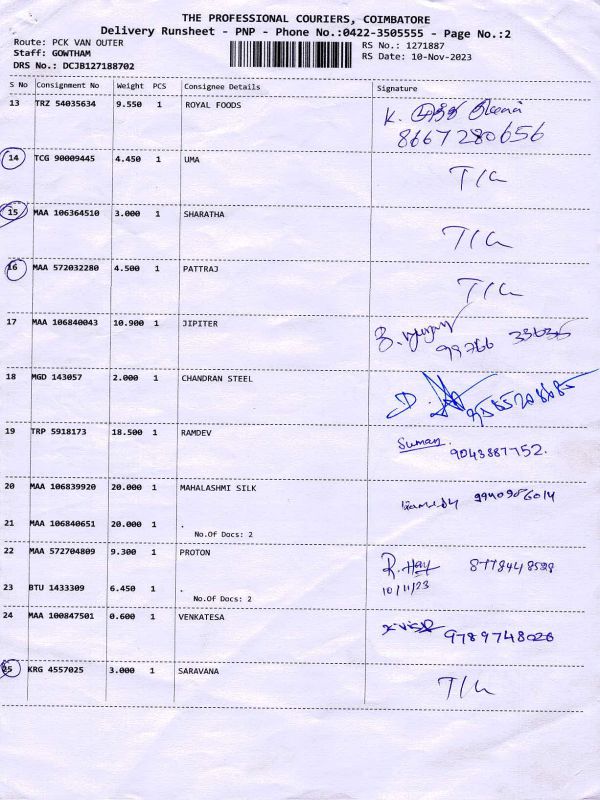 THE PROFESSIONAL COURIERS, COIMBATORE
Delivery Runsheet - PNP - Phone No.:0422-3505555 - Page No.:2
Route: PCK VAN OUTER
Staff: GOWTHAM
DRS No.: DCJB127188702
RS No.: 1271887
RS Date: 10-Nov-2023
S No Consignment No Weight PCS Consignee Details Signature
13 TRZ 54035634 9.550 1 ROYAL FOODS K.
8667280656
14 TCG 90009445 4.450 1 UMA T/C
15 MAA 106364510 3.000 1 SHARATHA T/C
16 MAA 572032280 4.500 1 PATTRAJ T/C
17 MAA 106840043 10.900 1 JIPITER
99766
18 MGD 143057 2.000 1 CHANDRAN STEEL D.
19 TRP 5918173 18.500 1 RAMDEV Suman
9043887752.
20 MAA 106839920 20.000 1 MAHALASHMI SILK
21 MAA 106840651 20.000 1 .
No.Of Docs: 2
22 MAA 572704809 9.300 1 PROTON R.
10/11/23
23 BTU 1433309 6.450 1 .
No.Of Docs: 2
24 MAA 100847501 0.600 1 VENKATESA
9789748026
25 KRG 4557025 3.000 1 SARAVANA T/C